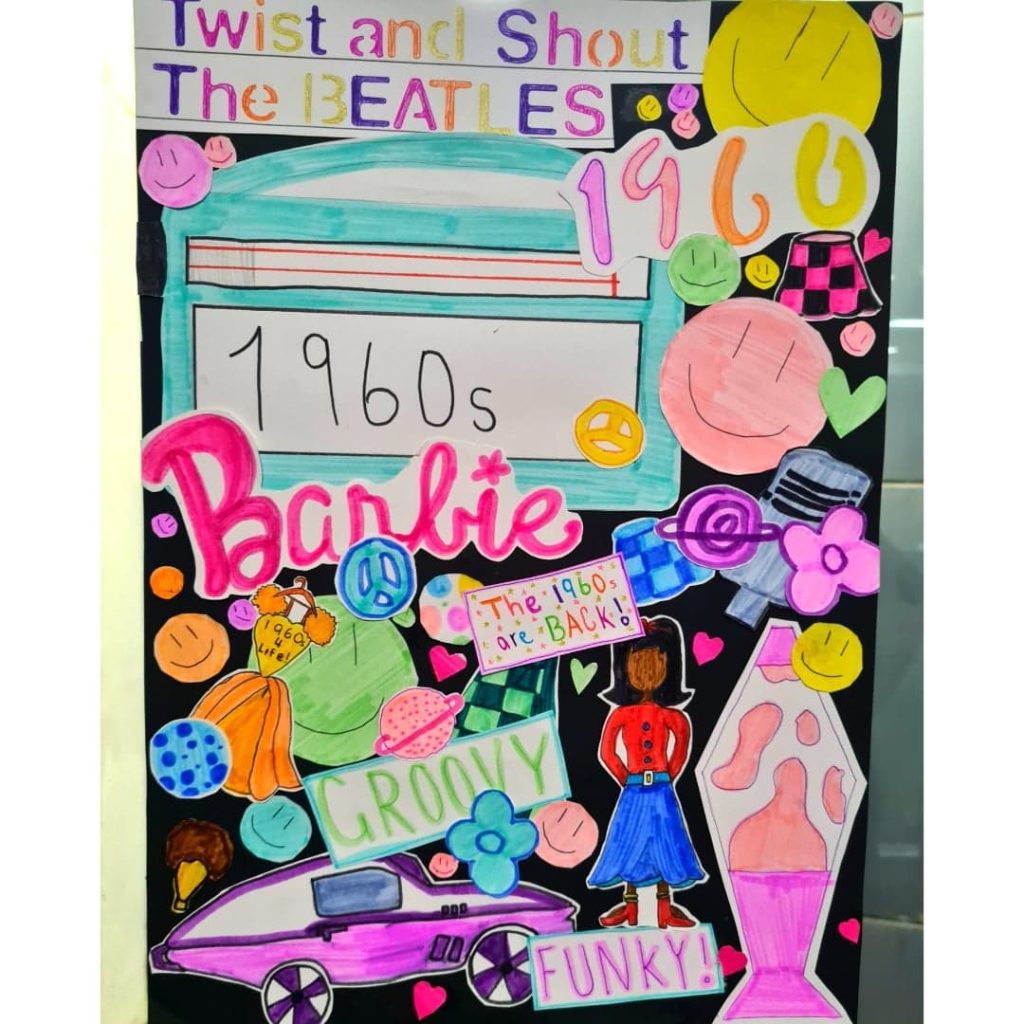 Twist and Shout
The BEATLES
1960
1960s
Barbie
The 1960s
are BACK!
1960s
4
Life!
GROOVY
FUNKY!